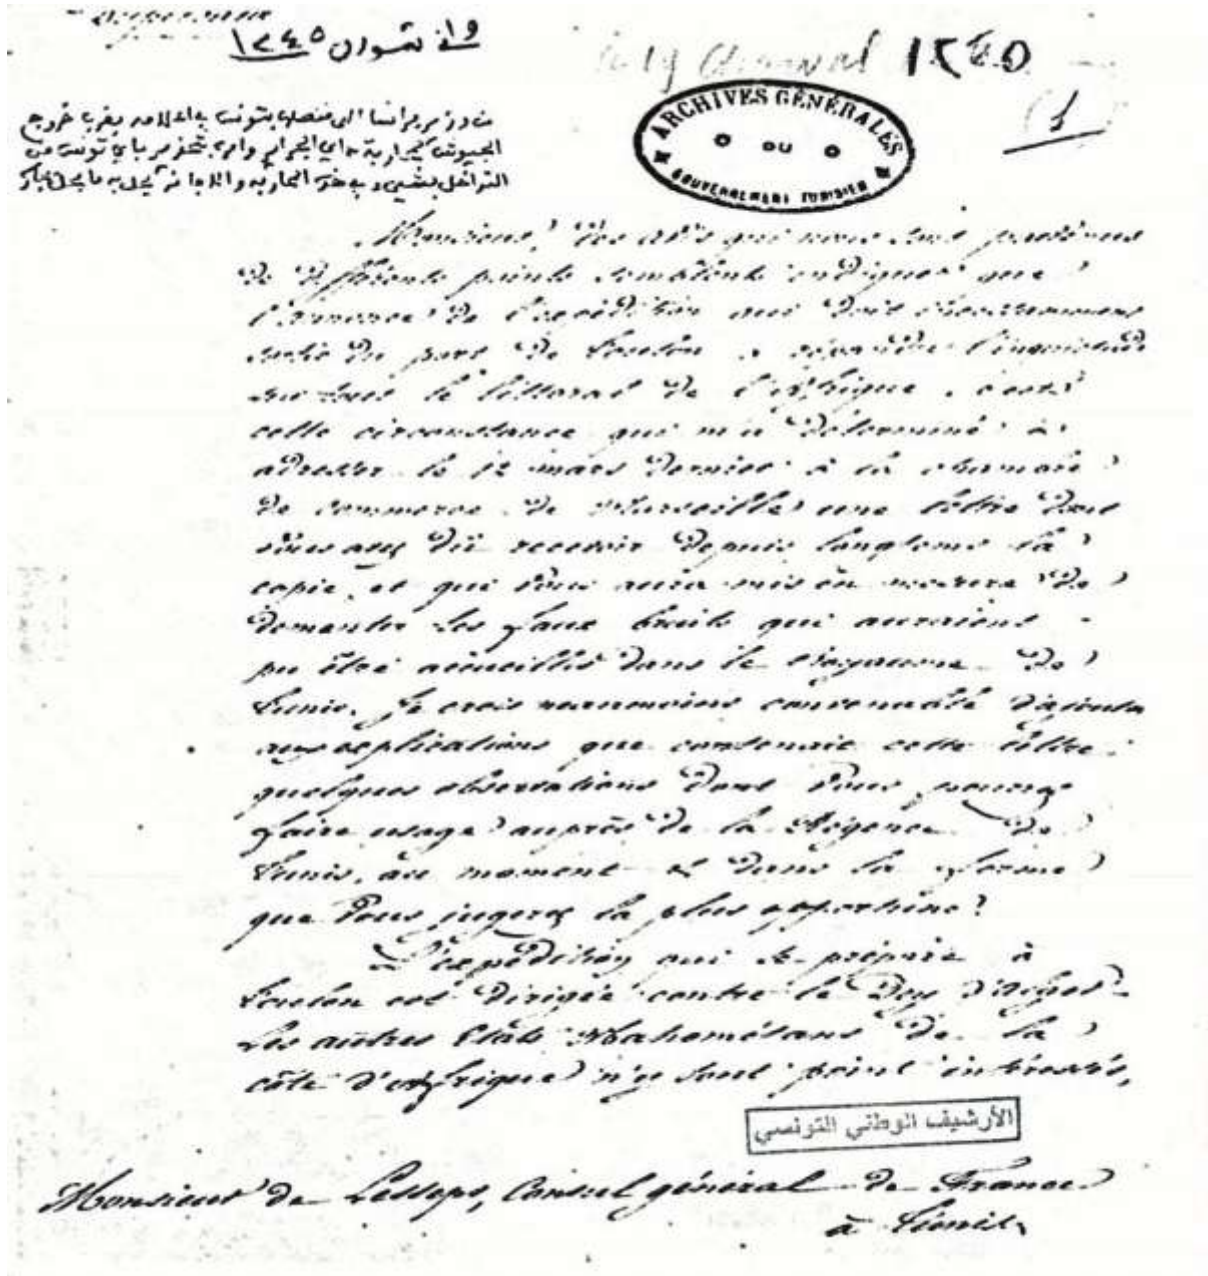 في 19 شوال ١٢٤٥
Le 19 Chawal ١٢٤٥
(1)
ARCHIVES GÉNÉRALES
DU
GOUVERNEMENT TUNISIEN
من وزير فرانسا الى قنصلها بتونس
الجيوش
Monsieur, des avis qui nous sont parvenus
de différents points semblent indiquer que
l'annonce de l'expédition qui doit incessamment
sortir du port de Toulon a répandu l'inquiétude
sur tout le littoral de l'Afrique. c'est
cette circonstance qui m'a déterminé à
adresser le 12 mars dernier à la chambre
de commerce de Marseille une lettre dont
vous avez dû recevoir depuis longtems la
copie, et qui vous aura mis en mesure de
démentir les faux bruits qui auraient
pu être accueillis dans le Royaume de
Tunis. Je crois néanmoins convenable d'ajouter
aux explications que contenait cette lettre
quelques observations dont vous pourrez
faire usage auprès de la Régence de
Tunis, au moment et dans la forme
que vous jugerez la plus opportune.
L'expédition qui se prépare à
Toulon est dirigée contre le Dey d'Alger
Les autres Etats Mahométans de la
côte d'Afrique n'y sont point intéressés,
الأرشيف الوطني التونسي
Monsieur de Lesseps, Consul général de France
à Tunis